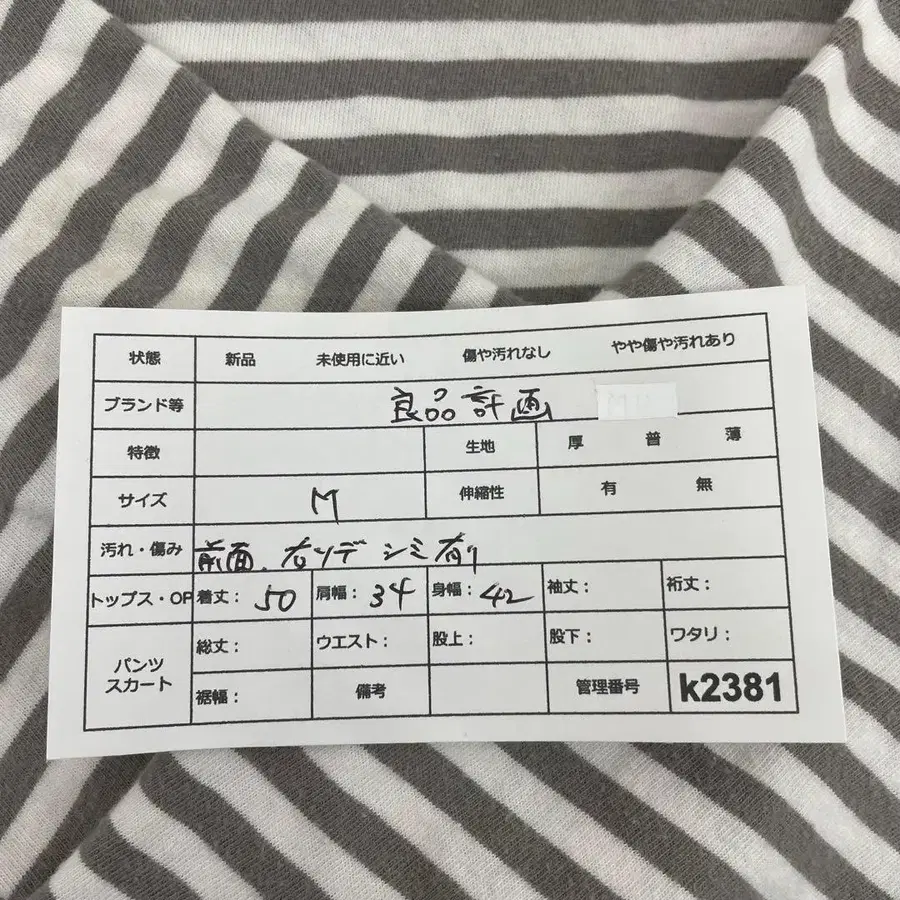 状態 新品 未使用に近い 傷や汚れなし やや傷や汚れあり
ブランド等 良品計画
特徴 生地 厚 普 薄
サイズ M 伸縮性 有 無
汚れ・傷み 前面、右ソデ シミ有り
トップス・OP 着丈: 50 肩幅: 34 身幅: 42 袖丈: 裄丈:
パンツ スカート 総丈: ウエスト: 股上: 股下: ワタリ:
裾幅: 備考 管理番号 k2381